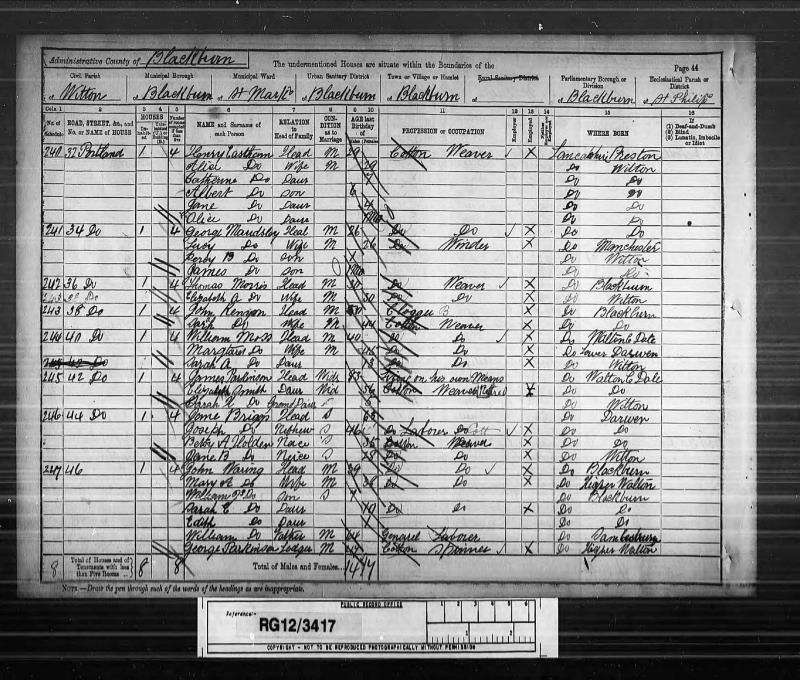 Administrative County of Blackburn The undermentioned Houses are situate within the Boundaries of the Page 44
Civil Parish Municipal Borough Municipal Ward Urban Sanitary District Town or Village or Hamlet Rural Sanitary District Parliamentary Borough or Division Ecclesiastical Parish or District
of Witton of Blackburn of St Mark's of Blackburn of Blackburn of of Blackburn of St Philip's
Cols. 1 2 3 4 5 6 7 8 9 10 11 12 13 14 15 16
No. of Schedule ROAD, STREET, &c., and No. or NAME of HOUSE HOUSES NAME and Surname of each Person RELATION to Head of Family CONDITION as to Marriage AGE last Birthday of PROFESSION or OCCUPATION Employer Employed WHERE BORN If (1) Deaf-and-Dumb (2) Blind (3) Lunatic, Imbecile or Idiot
240 32 Portland 1 4 Henry Head M 29 Cotton Weaver X Lancashire Preston
Alice Do Wife M 29 Do Witton
Catherine Do Daur 7 Do Do
Albert Do Son 6 Do Do
Jane Do Daur 4 Do Do
Alice Do Daur Do Do
241 34 Do 1 4 George Maudsley Head M 26 Do Do X Do Do
Lucy Do Wife M 26 Do Winder X Do Manchester
Percy B Do Son Do Witton
James Do Son Do Do
242 36 Do 1 4 Thomas Morris Head M 30 Do Weaver X Do Blackburn
Elizabeth A Do Wife M 30 Do Do X Do Witton
243 38 Do 1 4 John Kenyon Head M 50 Clogger X Do Blackburn
Do Wife M 44 Cotton Weaver X Do Do
244 40 Do 1 4 William Moss Head M 40 Do Do X Do Walton le Dale
Margtaret Do Wife M 46 Do Do X Do Lower Darwen
245 42 Do Sarah A Do Daur 13 Do Do X Do Witton
245 42 Do 1 4 James Parkinson Head Widr 83 Living on his own Means Do Walton le Dale
Elizabeth Smith Daur Wid 56 Cotton Weaver X Do Do
Sarah Do Grand Daur S Do Witton
246 44 Do 1 4 Jane Briggs Head S 65 Do Darwen
Joseph Do Nephew S 46 Do Laborer X Do Do
Betsy A Holden Niece S 35 Cotton Weaver X Do Do
Jane B Do Neice S 28 Do Do X Do Witton
247 46 1 4 John Waring Head M 39 Do Do X Do Blackburn
Mary A Do Wife M 36 Do Do X Do Higher Walton
William Do Son S 7 Do Blackburn
Sarah E Do Daur 10 Do Do X Do Do
Edith Do Daur Do Do
William Do Father M 64 General Laborer Do Samlesbury
George Parkinson Lodger M 47 Cotton Spinner X Do Higher Walton
8 Total of Houses and of Tenements with less than Five Rooms 8 8 Total of Males and Females 14 17
NOTE.—Draw the pen through such of the words of the headings as are inappropriate.
PUBLIC RECORD OFFICE
Reference:-
RG12/3417
1 2 3 4 5 6
1 2
COPYRIGHT - NOT TO BE REPRODUCED PHOTOGRAPHICALLY WITHOUT PERMISSION